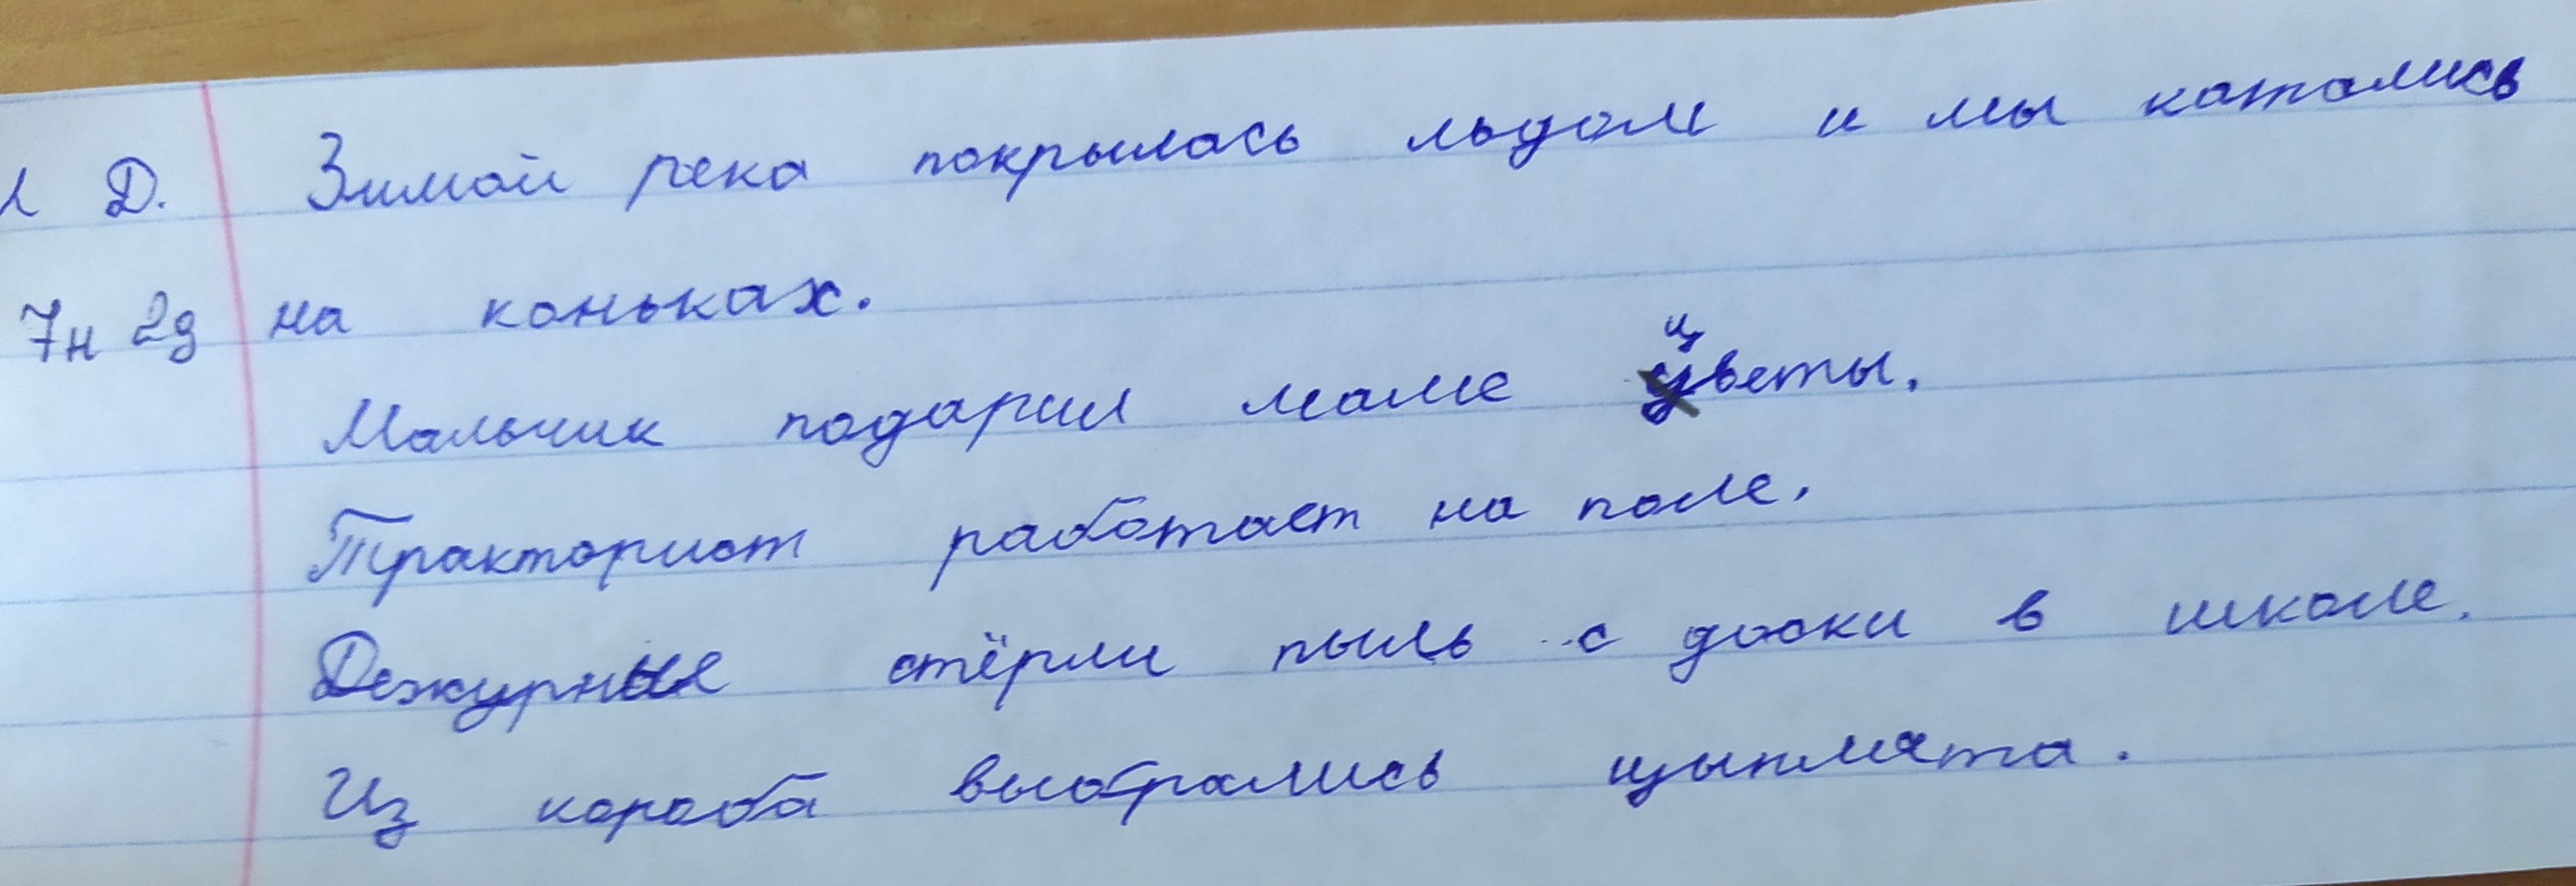 Д. Зимой река покрылась льдом и мы катались
7н 2д на коньках.
Мальчик подарил маме цветы.
Тракторист работает на поле.
Дежурные стёрли пыль с доски в школе.
Из короба выбрались цыплята.